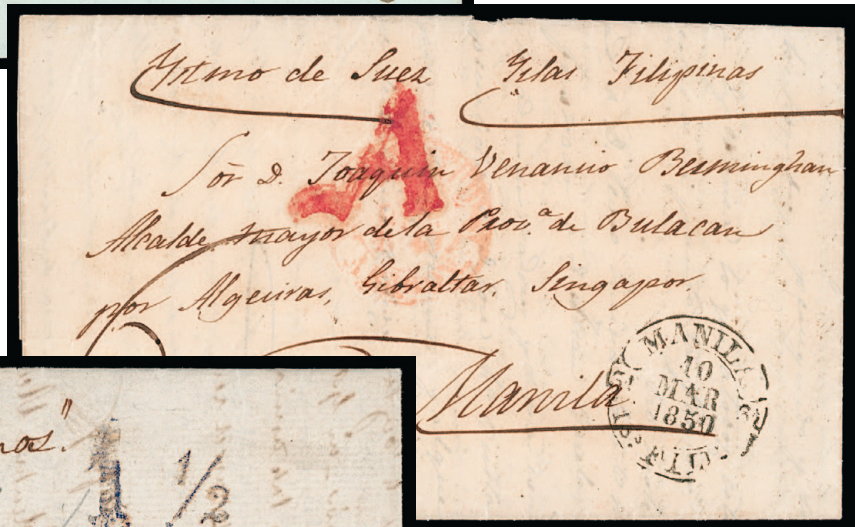 Ystmo de Suez Yslas Filipinas
A
Sōr D. Joaquin Venancio Bermingham
Alcalde mayor de la Provª de Bulacan
por Algeciras, Gibraltar, Singapor.
Manila
MANILA
10
MAR
1850
1 1/2